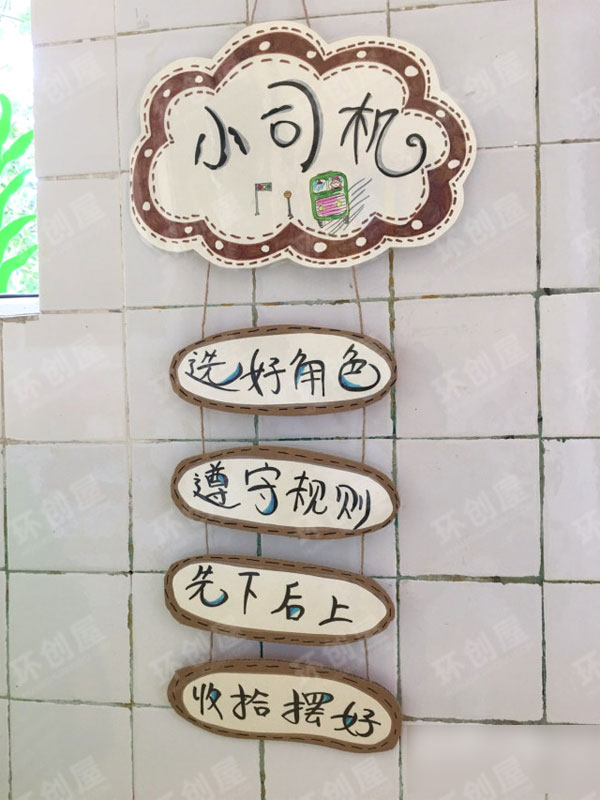 小司机
选好角色
遵守规则
先下后上
收拾摆好
环创屋